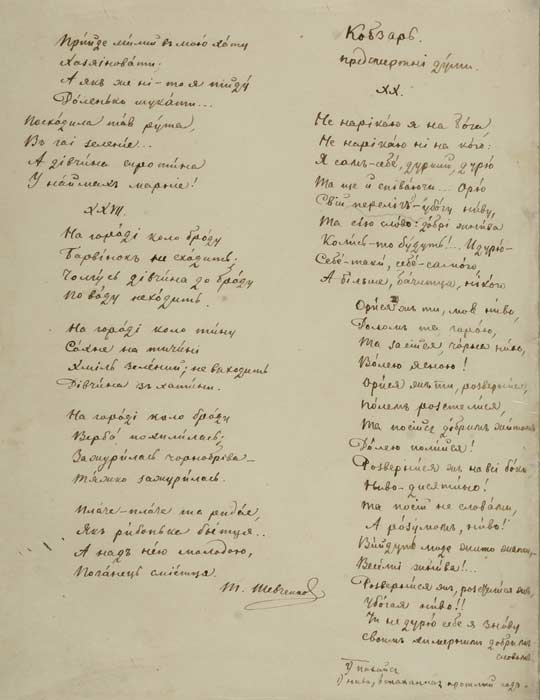 Прійде милий въ мою хату
Хазяіновати;
А якъ же ні - то я піду
Доленько шукати...
Посходила мавъ рута,
Въ гаі зеленіе...
А дівчина сиротина
У наймахъ марніе!
XXIII.
На городі коло броду
Барвінокъ не сходить;
Чомусь дівчина до броду
По воду неходить.
На городі коло тину
Сохне на тичині
Хміль зелений; не виходить
Дівчина зъ хатини.
На городі коло броду
Верба похилилась;
Зажурилась чорнобріва -
Тяжко зажурилась.
Плаче-плаче та ридае,
Якъ рибонька бьетця..
А надъ нею молодою,
Поганець сміетця.
Т. Шевченко
Кобзарь.
предсмертні думи.
XX.
Не нарікаю я на бога,
Не нарікаю ні на кого:
Я самъ-себе, дурний, дурю
Та ще й співаючи... Орю
Свій перелігъ - убогу ниву,
Та сію слово: добрі жнива
Колись-то будуть!.. И дурю-
Себе-таки, себе-самого
А більше, бачитця, нікого
Орися жъ ти, моя ниво,
Доломъ та горою,
Та засійся, чорна ниво,
Волею ясною!
Орися жъ ти, розвернися,
Полемъ розстелися,
Та посійся добримъ житомъ
Долею полийся!
Розвернися жъ на всі боки
Ниво-дисятино!
Та посій не словами,
А розумомъ, ниво!
Вийдуть люде жито жати..
Веселі жнива!..
Розвернися жъ, розстелися жъ,
Убогая ниво!!
Чи не дурю себе я знову
Своимъ химернимъ добримъ
словомъ